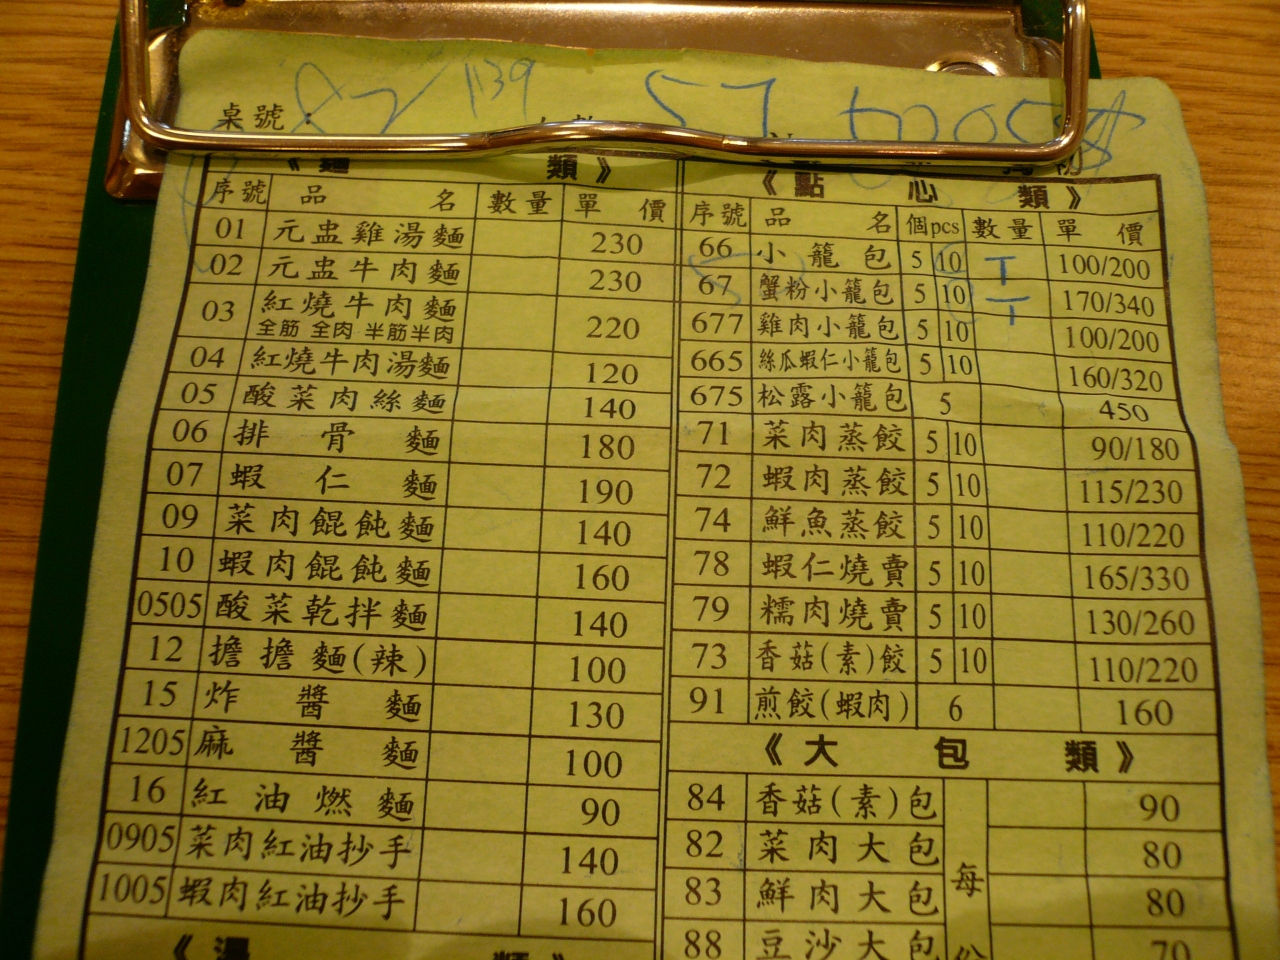 1139
桌號：
《麵 類》
序號 品 名 數量 單 價
01 元盅雞湯麵 230
02 元盅牛肉麵 230
03 紅燒牛肉麵 220
全筋 全肉 半筋半肉
04 紅燒牛肉湯麵 120
05 酸菜肉絲麵 140
06 排骨麵 180
07 蝦仁麵 190
09 菜肉餛飩麵 140
10 蝦肉餛飩麵 160
0505 酸菜乾拌麵 140
12 擔擔麵(辣) 100
15 炸醬麵 130
1205 麻醬麵 100
16 紅油燃麵 90
0905 菜肉紅油抄手 140
1005 蝦肉紅油抄手 160
《湯 類》
《點 心 類》
序號 品 名 個pcs 數量 單 價
66 小籠包 5 10 T 100/200
67 蟹粉小籠包 5 10 T 170/340
677 雞肉小籠包 5 10 100/200
665 絲瓜蝦仁小籠包 5 10 160/320
675 松露小籠包 5 450
71 菜肉蒸餃 5 10 90/180
72 蝦肉蒸餃 5 10 115/230
74 鮮魚蒸餃 5 10 110/220
78 蝦仁燒賣 5 10 165/330
79 糯肉燒賣 5 10 130/260
73 香菇(素)餃 5 10 110/220
91 煎餃(蝦肉) 6 160
《大 包 類》
84 香菇(素)包 90
82 菜肉大包 80
83 鮮肉大包 每 80
88 豆沙大包 份 70